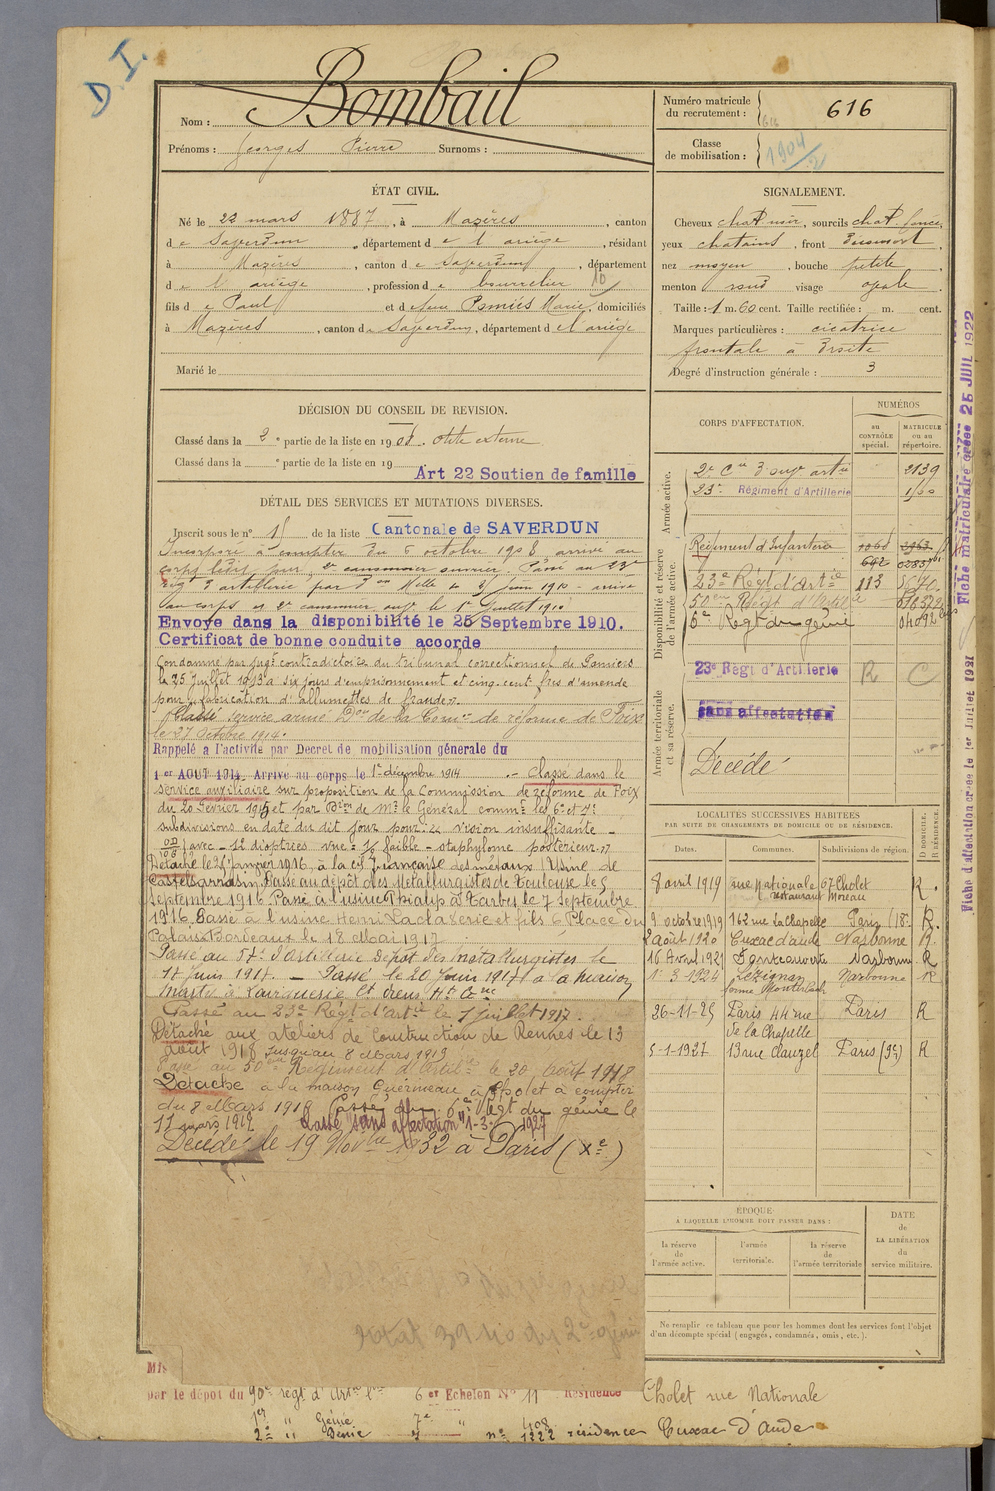 D. I.
Nom : Bombail
Prénoms : Georges Pierre Surnoms :
Numéro matricule du recrutement : 616
Classe de mobilisation : 1904/2
ÉTAT CIVIL.
Né le 22 mars 1887, à Mazères, canton
de Saverdun, département de l'ariège, résidant
à Mazères, canton de Saverdun, département
de l'ariège, profession de bourrelier
fils de Paul et de Pamiès Marie, domiciliés
à Mazères, canton de Saverdun, département de l'ariège
Marié le
SIGNALEMENT.
Cheveux chat noir, sourcils chat. foncé,
yeux chatains, front
nez moyen, bouche petite,
menton rond visage ovale
Taille : 1 m. 60 cent. Taille rectifiée : m. cent.
Marques particulières : cicatrice
frontale à droite
Degré d'instruction générale : 3
DÉCISION DU CONSEIL DE REVISION.
Classé dans la 2e partie de la liste en 1908. otite externe
Classé dans la e partie de la liste en 19
Art 22 Soutien de famille
DÉTAIL DES SERVICES ET MUTATIONS DIVERSES.
Inscrit sous le n° 15 de la liste Cantonale de SAVERDUN
Incorporé à compter du 6 octobre 1908 arrivé au
corps ledit jour, 2e canonnier ouvrier. Passé au 23e
Régt d'artillerie par Don Melle du 25 juin 1910 - arrivé
au corps et 2e canonnier le 1er Juillet 1910
Envoyé dans la disponibilité le 25 Septembre 1910.
Certificat de bonne conduite accordé
Condamné par jugt contradictoire du tribunal correctionnel de Pamiers
le 25 Juillet 1913 à six jours d'emprisonnement et cinq cent frcs d'amende
pour fabrication d'allumettes de fraude.
Classé service armé Don de la Comon de réforme de Foix
le 27 Octobre 1914.
Rappelé à l'activité par Decret de mobilisation génerale du
1er AOUT 1914. Arrivé au corps le 1er décembre 1914 .- Classé dans le
service auxiliaire sur proposition de la Commission de réforme de Foix
du 20 Février 1915 et par Dion de Mr le Général commt les 6e et 7e
subdivisions en date du dit jour pour : vision insuffisante -
OD/OG avec - 12 dioptries vue = faible - staphylome postérieur.
Détaché le 25 Janvier 1916, à la Cie Française des métaux (Usine de
Castelsarrasin. Passé au dépôt des Métallurgistes de Toulouse le 5
Septembre 1916. Passé à l'usine à Tarbes le 7 Septembre
1916. Passé à l'usine Henri Laclaserie et fils 6 Place du
Palais Bordeaux le 18 Mai 1917
Passé au 57e d'artillerie Dépôt des métallurgistes le
17 Juin 1917. - Passé le 20 Juin 1917 à la maison
Passé au 23e Régt d'artie le 1 Juillet 1917.
Détaché aux ateliers de Construction de Rennes le 13
Août 1918 jusqu'au 8 Mars 1919
Passé au 50eme Régiment d'Artil le 20 Août 1918
Détaché à la maison Guermeau à Cholet à compter
du 8 Mars 1919 Passé au 6e Régt du génie le
11 mars 1919 Classé sans affectation 1-3-1927
Décédé le 19 Novbre 1932 à Paris (Xe)
CORPS D'AFFECTATION.
NUMÉROS
au CONTRÔLE spécial.
MATRICULE ou au répertoire.
Armée active.
2e Cie d'ouvr artie 2139
23e Régiment d'Artillerie
Disponibilité et réserve de l'armée active.
Régiment d'Infanterie
23e Régt d'artie 113
50eme Régt d'Artie
6e Régt du génie
Armée territoriale et sa réserve.
23e Régt d'Artillerie R C
sans affectation
Décédé
LOCALITÉS SUCCESSIVES HABITÉES
PAR SUITE DE CHANGEMENTS DE DOMICILE OU DE RÉSIDENCE.
Dates. Communes. Subdivisions de région. D DOMICILE. R RÉSIDENCE.
8 avril 1919 rue Nationale 67 Cholet R.
restaurant Moreau
9 octobre 1919 162 rue La Chapelle Paris (18e R.
2 août 1920 Cuxac d'aude Narbonne R.
16 Avril 1921 Narbonne R
1-3-1924 Lézignan Narbonne R
26-11-25 Paris 44 rue Paris R
de la Chapelle
5-1-1927 13 rue Clauzel Paris (9e) R
ÉPOQUE
A LAQUELLE L'HOMME DOIT PASSER DANS :
la réserve de l'armée active.
l'armée territoriale.
la réserve de l'armée territoriale
DATE de LA LIBÉRATION du service militaire.
Ne remplir ce tableau que pour les hommes dont les services font l'objet
d'un décompte spécial (engagés, condamnés, omis, etc.).
par le dépôt du 90e régt d'Artie 6 er Echelon N° 11 Résidence Cholet rue Nationale
1er " Génie 7e " 408
2e " Génie 7 n° 1222 résidence Cuxac d'Aude
Fiche matriculaire créée 25 JUIL 1922
Fiche d'affectation créée le 1er Juillet 1921